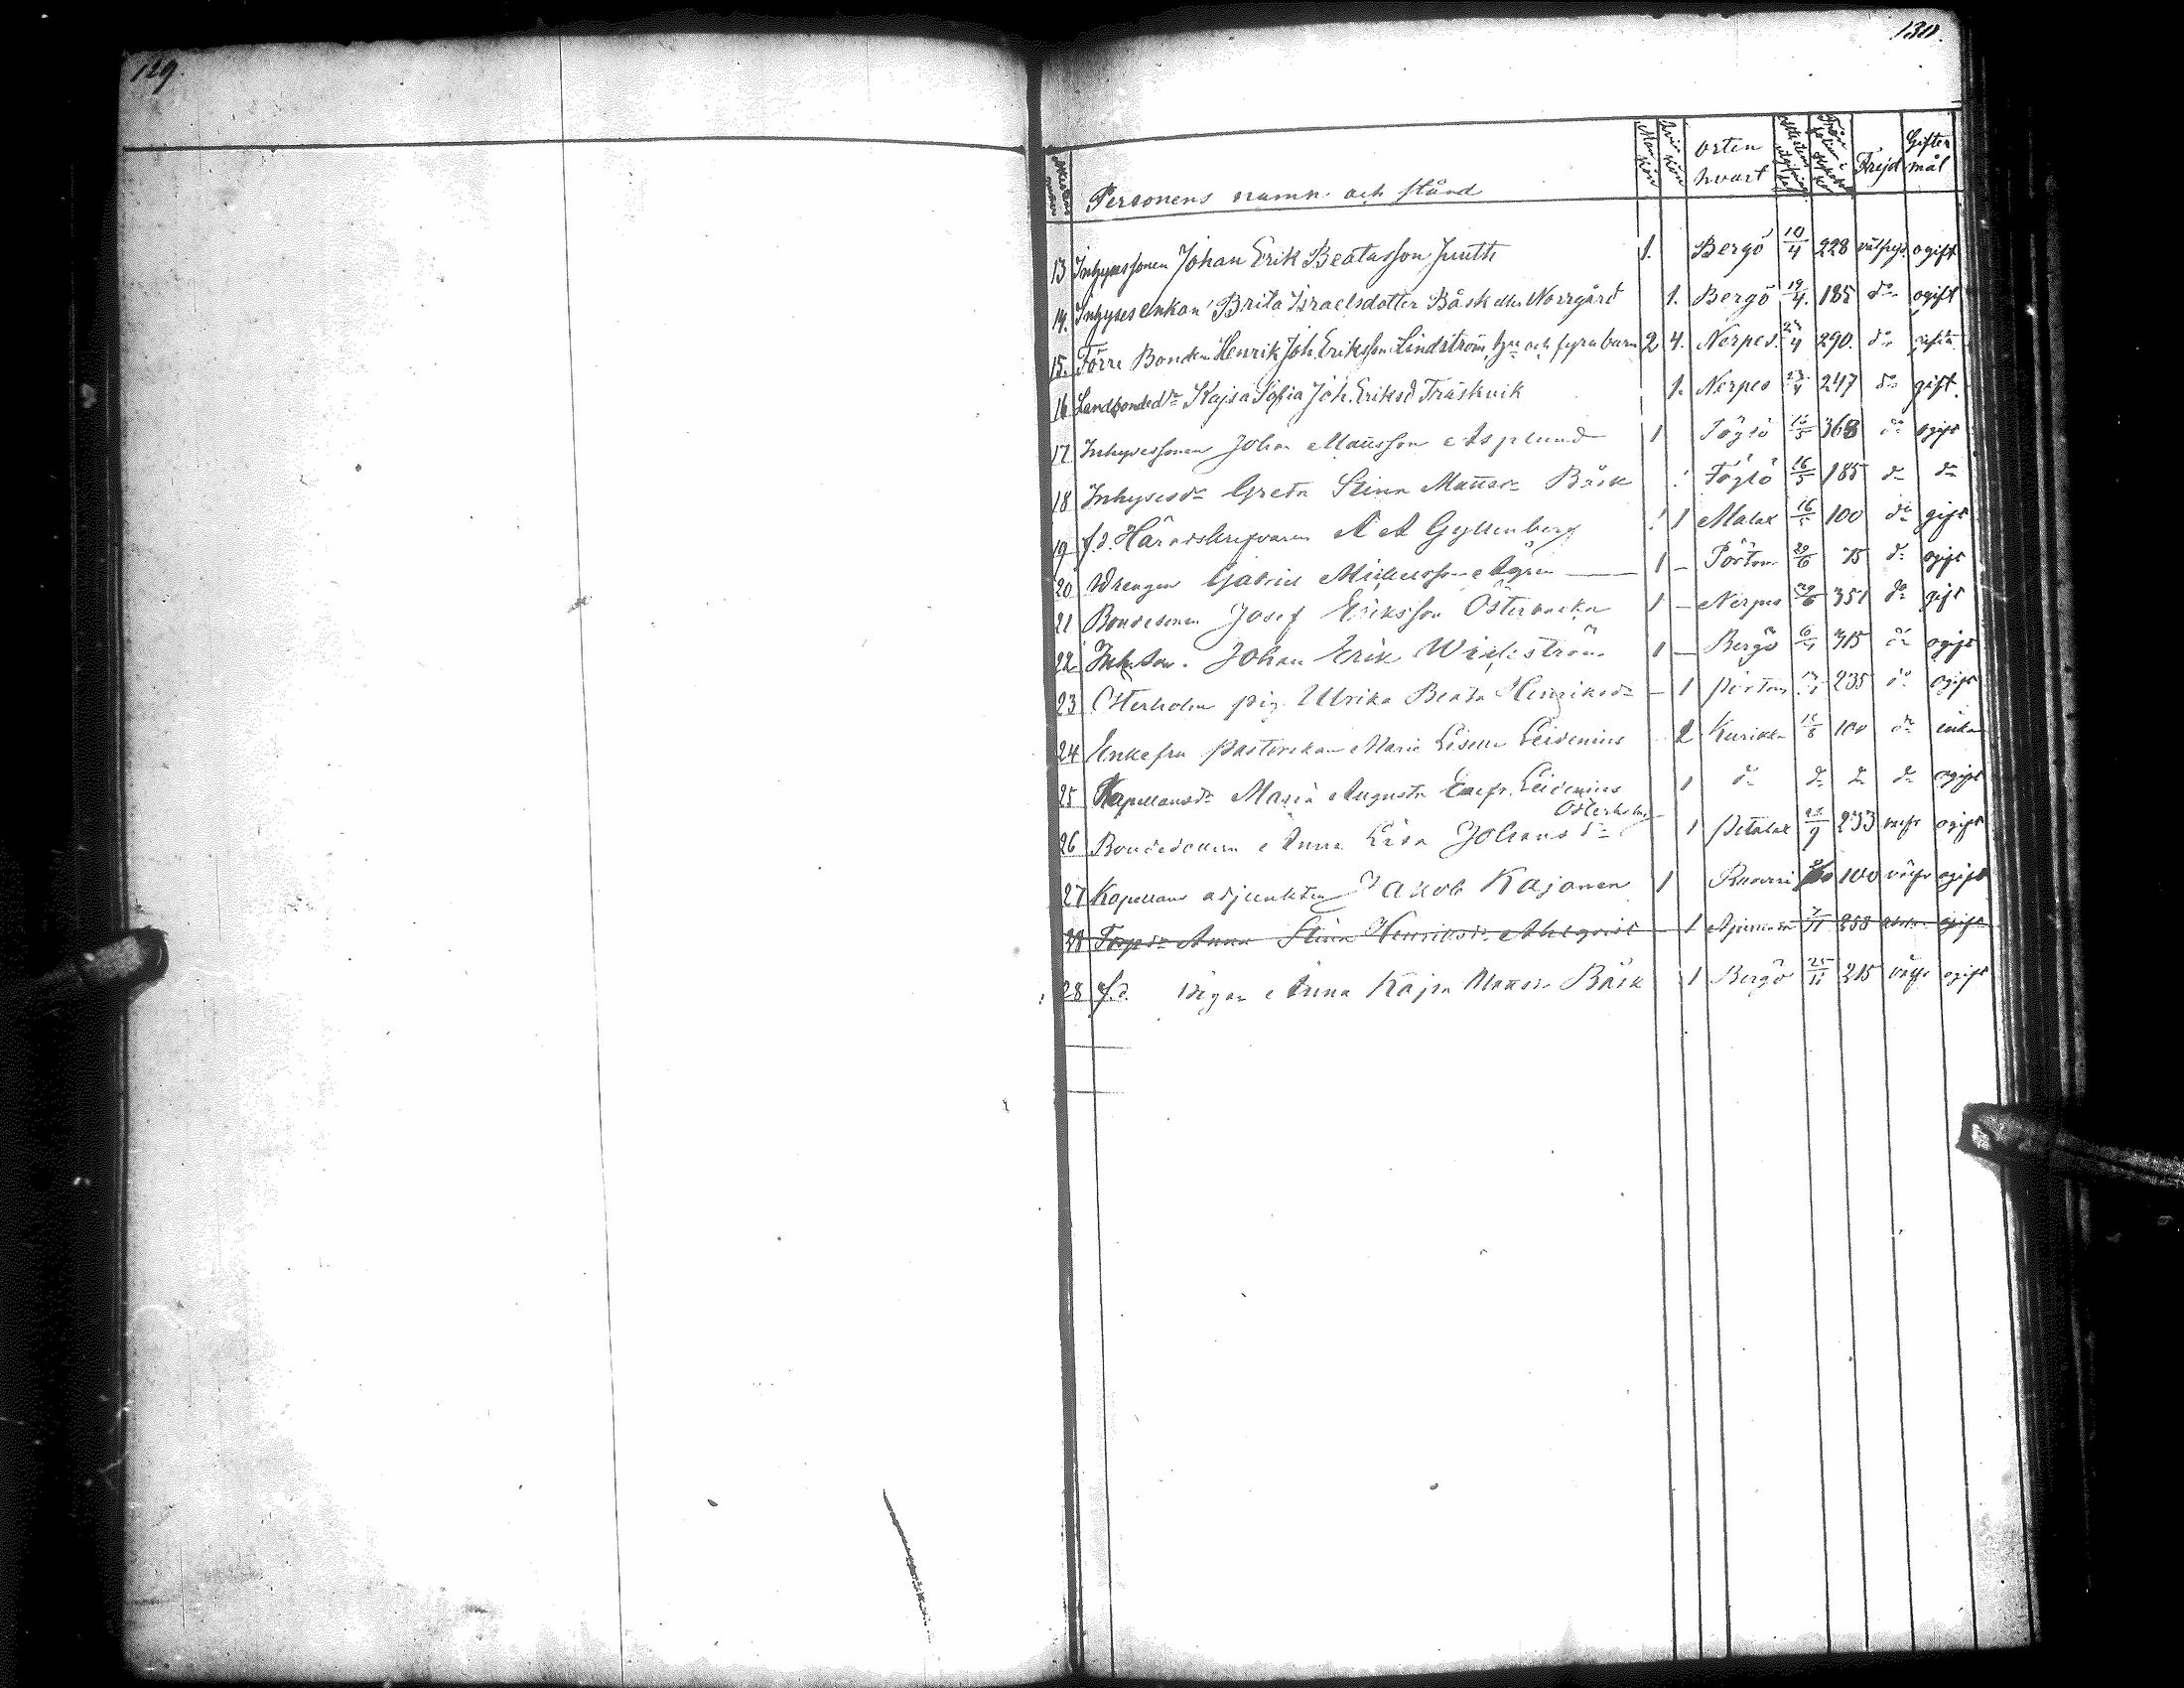 129.
130.
Personens namn och stånd Man kön Qvin kön orten hvart Frejd Gifter mål
13 Inhysessonen Johan Erik Beatasson Juuth 1. Bergö 10/4 228 välfrejd. ogift
14. Inhyses enkan Brita Israelsdotter Båsk eller Norrgård 1. Bergö 19/4. 185 do ogift
15. Förre Bonden Henrik Joh. Eriksson Lindström, hu och fyra barn 2 4. Nerpes. 290. do gifta
16 Landbonded:r Kajsa Sofia Joh. Eriksd Träskvik 1. Nerpes 247 do gift.
17 Inhysessonen Johan Mattsson Asplund 1 Föglö 368 do ogift
18 Inhysesdr Greta Stina Mattsdr Båsk Föglö 16/5 185 do do
19 f.d. Häradskrifvaren A A Gyllenberg 1 1 Malax 16/5 100 do gift
20 Drengen Gabriel Michelsson Ågren 1 – Pörtom 29/6 75 do ogift
21 Bondesonen Josef Eriksson Österbacka 1 – Nerpes 29/6 351 do gift
22 Inh. Son. Johan Erik Widström 1 – Bergö 315 do ogift
23 Österholm pig. Ulrika Beata Henriksdr – 1 Pörtom 235 do ogift
24 Enkefru Pastorskan Maria Lisette Leidenius 2 Kurikka 15/8 100 do enka
25 Kapellansdr Maria Augusta Leidenius 1 do do do do ogift
Österholm
26 Bondedottern Anna Lisa Johansdr 1 Petalax 233 välfr ogift
27 Kapellans adjunkten Jakob Kajanen 1 100 välfr ogift
28 Torpdr Anna Stina Henriksdr Ahlqvist 1 258 ogift
28 f.d. Pigan Anna Kajsa Mattsdr Båsk 1 Bergö 215 välfr ogift